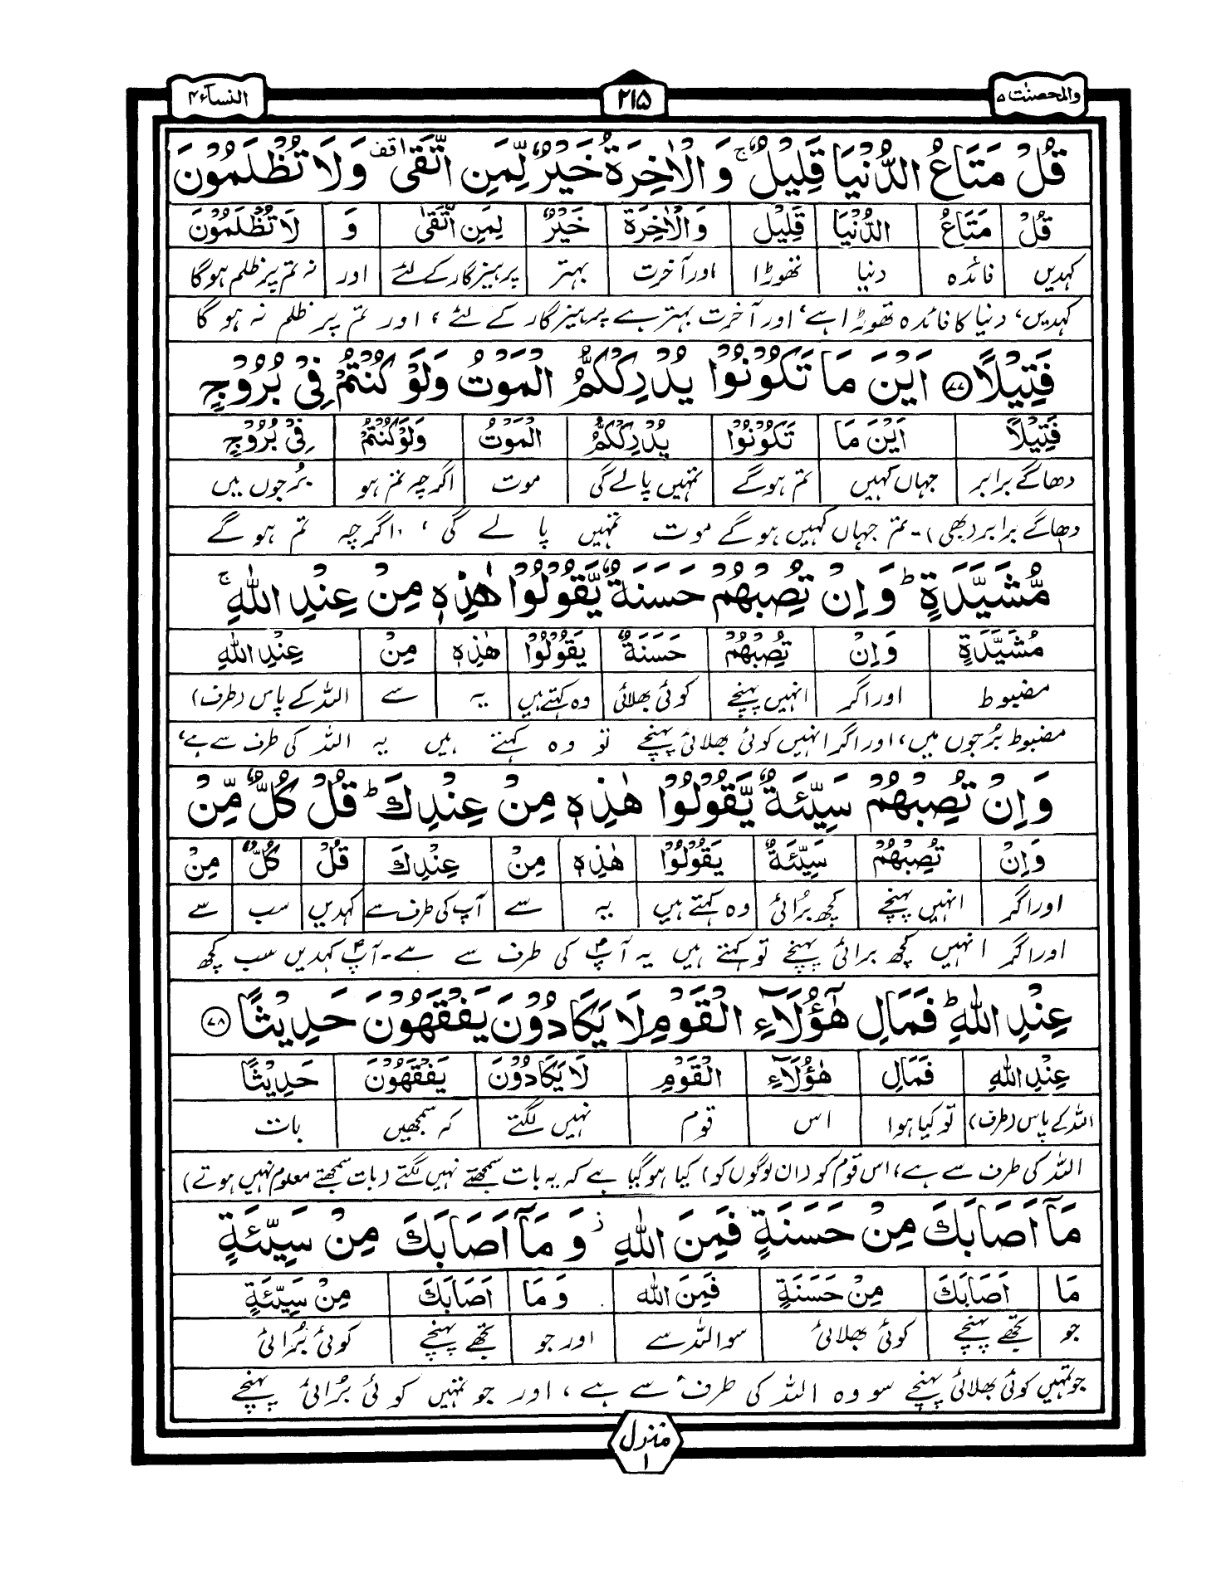 والمحصنت ۵ ۲۱۵ النسآء ۴
قُلْ مَتَاعُ الدُّنْيَا قَلِيْلٌ ۚ وَالْاٰخِرَةُ خَيْرٌ لِّمَنِ اتَّقٰى ۫ وَلَا تُظْلَمُوْنَ
قُلْ مَتَاعُ الدُّنْيَا قَلِيْل وَالْاٰخِرَةُ خَيْرٌ لِمَنِ اتَّقٰى وَ لَا تُظْلَمُوْنَ
کہدیں فائدہ دنیا تھوڑا اور آخرت بہتر پرہیزگار کے لئے اور نہ تم پر ظلم ہوگا
کہدیں، دنیا کا فائدہ تھوڑا ہے، اور آخرت بہتر ہے پرہیزگار کے لئے، اور تم پر ظلم نہ ہو گا
فَتِيْلًا ﴿۷۷﴾ اَيْنَ مَا تَكُوْنُوْا يُدْرِكْكُّمُ الْمَوْتُ وَلَوْ كُنْتُمْ فِيْ بُرُوْجٍ
فَتِيْلًا اَيْنَ مَا تَكُوْنُوْا يُدْرِكْكُّمُ الْمَوْتُ وَلَوْ كُنْتُمْ فِيْ بُرُوْجٍ
دھاگے برابر جہاں کہیں تم ہوگے تمہیں پالے گی موت اگرچہ تم ہو بُرجوں میں
دھاگے برابر (بھی)۔ تم جہاں کہیں ہو گے موت تمہیں پا لے گی، اگرچہ تم ہو گے
مُّشَيَّدَةٍ ؕ وَاِنْ تُصِبْهُمْ حَسَنَةٌ يَّقُوْلُوْا هٰذِهٖ مِنْ عِنْدِ اللّٰهِ ۚ
مُشَيَّدَةٍ وَاِنْ تُصِبْهُمْ حَسَنَةٌ يَقُوْلُوْا هٰذِهٖ مِنْ عِنْدِ اللّٰهِ
مضبوط اور اگر انہیں پہنچے کوئی بھلائی وہ کہتے ہیں یہ سے اللہ کے پاس (طرف)
مضبوط بُرجوں میں، اور اگر انہیں کوئی بھلائی پہنچے تو وہ کہتے ہیں یہ اللہ کی طرف سے ہے،
وَاِنْ تُصِبْهُمْ سَيِّئَةٌ يَّقُوْلُوْا هٰذِهٖ مِنْ عِنْدِكَ ؕ قُلْ كُلٌّ مِّنْ
وَاِنْ تُصِبْهُمْ سَيِّئَةٌ يَقُوْلُوْا هٰذِهٖ مِنْ عِنْدِكَ قُلْ كُلٌّ مِنْ
اور اگر انہیں پہنچے کچھ بُرائی وہ کہتے ہیں یہ سے آپ کی طرف سے کہدیں سب سے
اور اگر انہیں کچھ برائی پہنچے تو کہتے ہیں یہ آپؐ کی طرف سے ہے۔ آپؐ کہدیں سب کچھ
عِنْدِ اللّٰهِ ؕ فَمَالِ هٰٓؤُلَآءِ الْقَوْمِ لَا يَكَادُوْنَ يَفْقَهُوْنَ حَدِيْثًا ﴿۷۸﴾
عِنْدِ اللّٰهِ فَمَالِ هٰٓؤُلَآءِ الْقَوْمِ لَا يَكَادُوْنَ يَفْقَهُوْنَ حَدِيْثًا
اللہ کے پاس (طرف) تو کیا ہوا اس قوم نہیں لگتے کہ سمجھیں بات
اللہ کی طرف سے ہے، اس قوم کو (ان لوگوں کو) کیا ہوگیا ہے کہ یہ بات سمجھتے نہیں لگتے (بات سمجھتے معلوم نہیں ہوتے)
مَآ اَصَابَكَ مِنْ حَسَنَةٍ فَمِنَ اللّٰهِ ۫ وَمَآ اَصَابَكَ مِنْ سَيِّئَةٍ
مَا اَصَابَكَ مِنْ حَسَنَةٍ فَمِنَ اللّٰه وَمَا اَصَابَكَ مِنْ سَيِّئَةٍ
جو تجھے پہنچے کوئی بھلائی سو اللہ سے اور جو تجھے پہنچے کوئی بُرائی
جو تمہیں کوئی بھلائی پہنچے سو وہ اللہ کی طرف سے ہے، اور جو تمہیں کوئی بُرائی پہنچے
منزل
۱